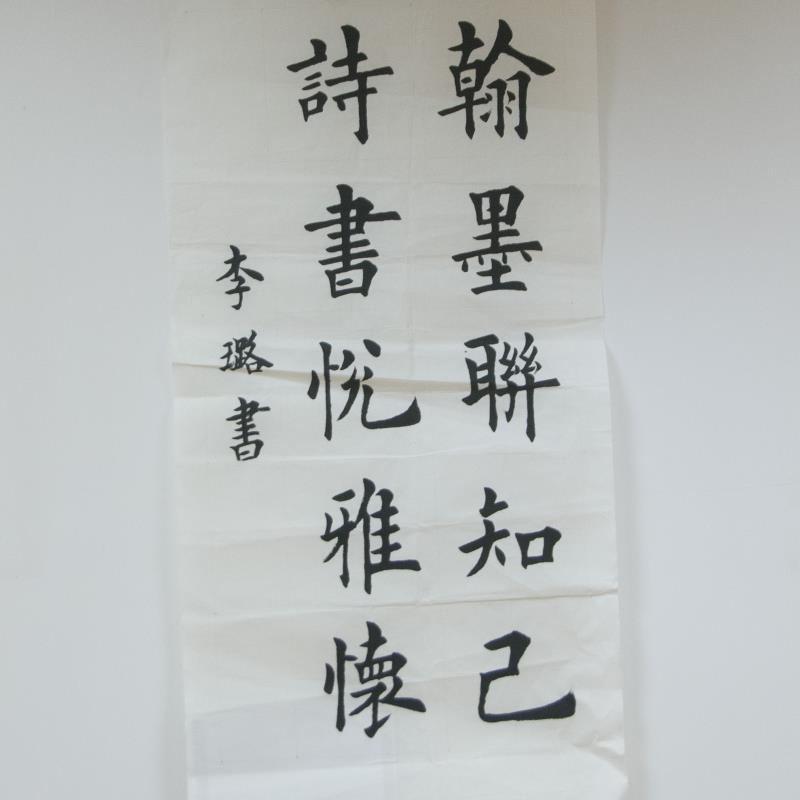 翰墨聯知己
詩書悅雅懷
李璐書